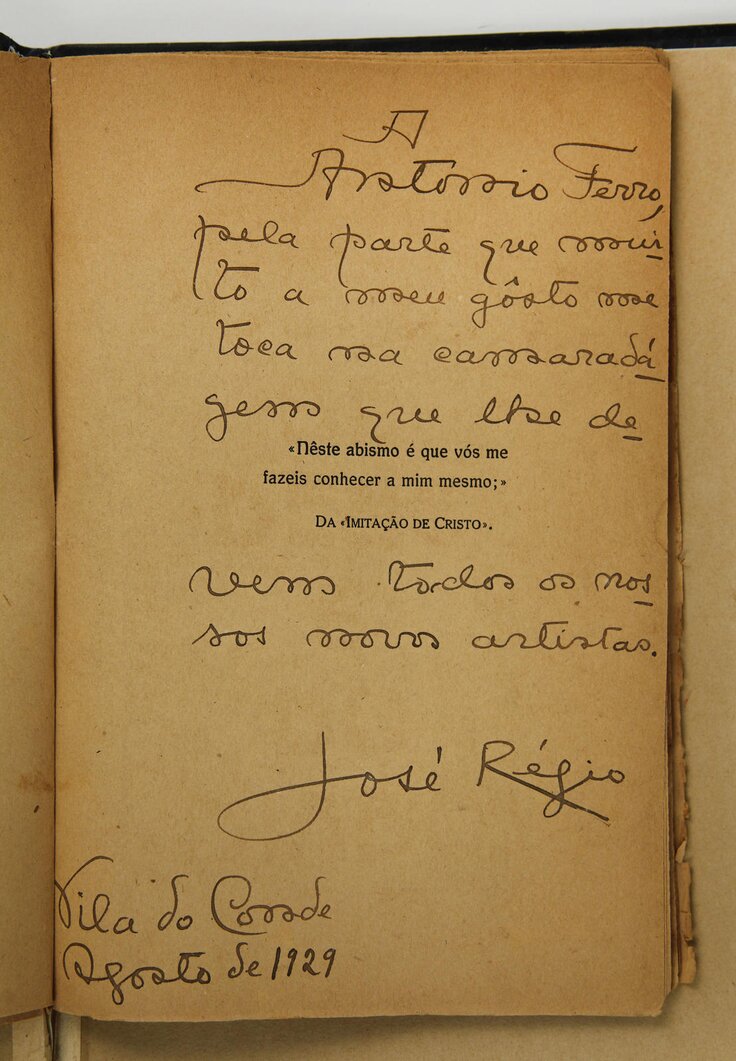 A
António Ferro,
pela parte que mui-
to a meu gôsto me
toca na camarada-
gem que lhe de-
«Nêste abismo é que vós me
fazeis conhecer a mim mesmo;»
DA «IMITAÇÃO DE CRISTO».
vem todos os nos-
sos novos artistas.
José Régio
Vila do Conde
Agosto de 1929